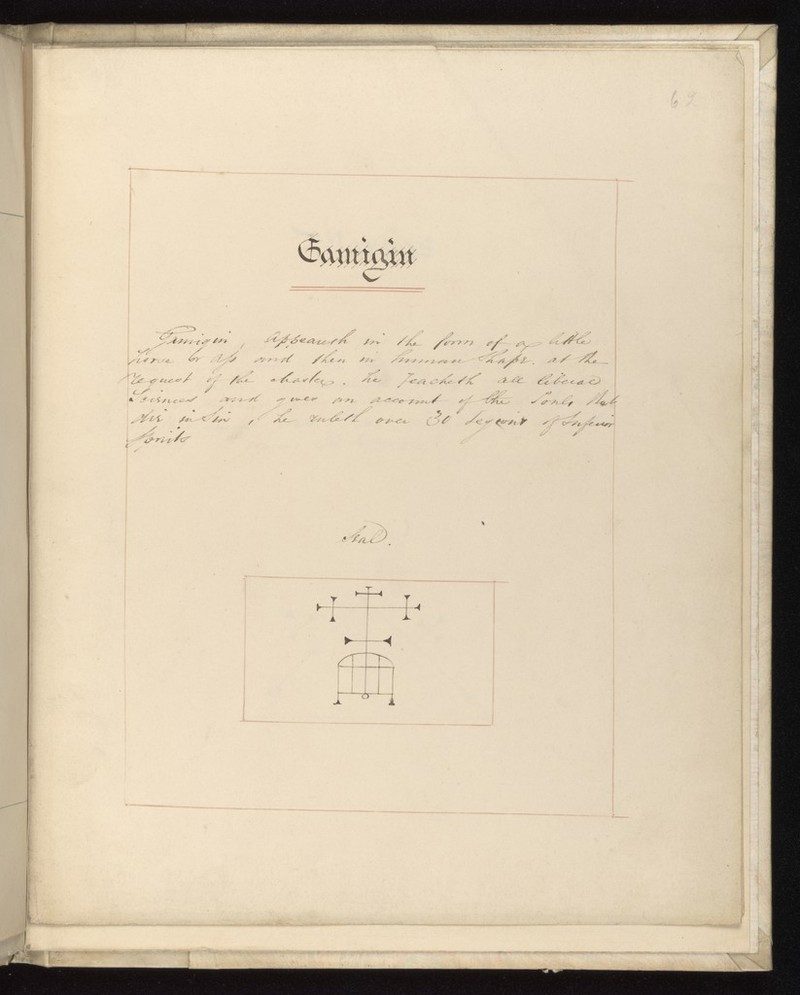 69
Gamigin
Gamigin, Appeareth in the form of a little
horse or ass and then in human Shape. at the
request of the Master. he Teacheth all liberal
Sciences and gives an account of the Souls that
die in Sin, he ruleth over 30 Legions of Inferior
Spirits
Seal.